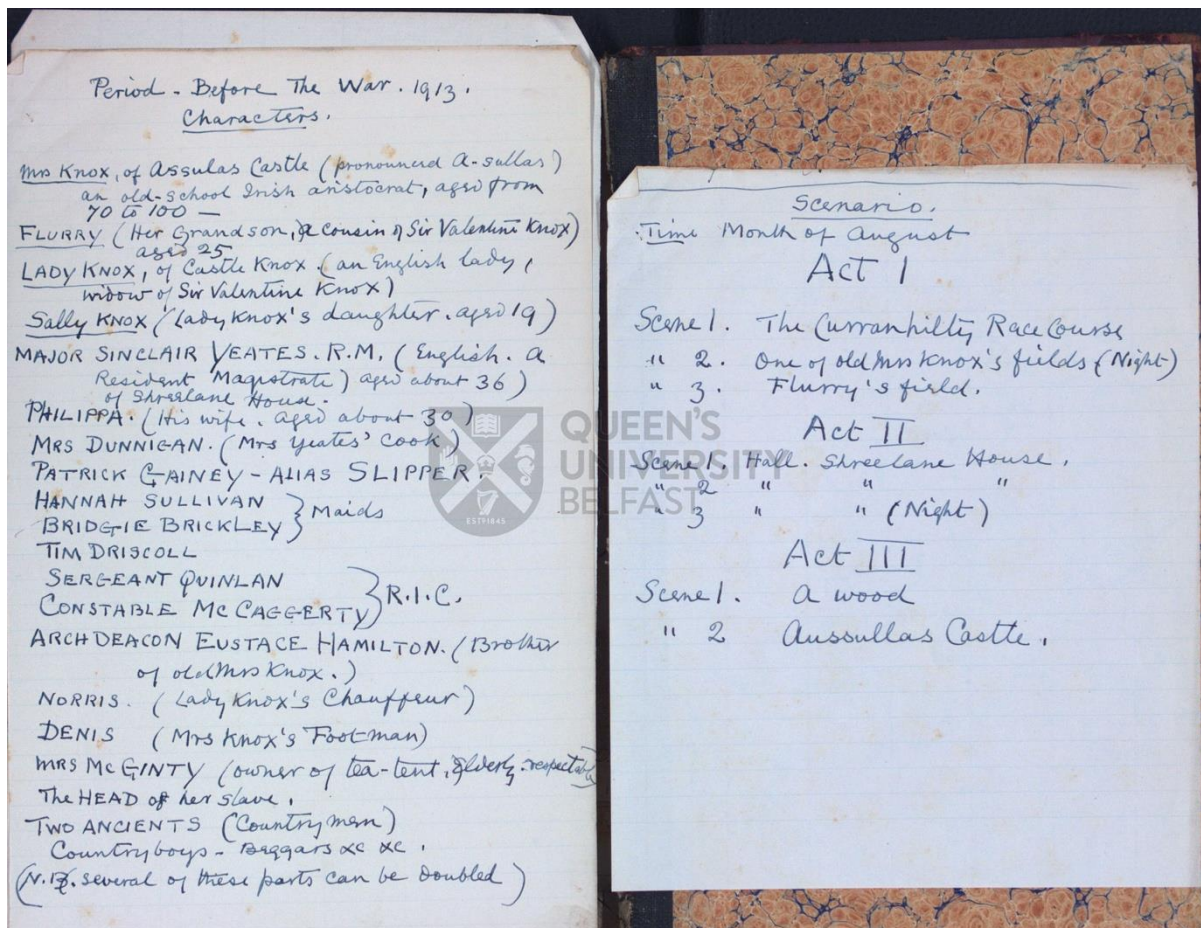 Period - Before The War. 1913.
Characters.
Mrs Knox, of Assulas Castle (pronounced A-sullas)
an old-school Irish aristocrat, aged from
70 to 100 —
FLURRY (Her Grandson, a cousin of Sir Valentine Knox)
aged 25
LADY KNOX, of Castle Knox. (an English lady,
widow of Sir Valentine Knox)
Sally KNOX (Lady Knox's daughter. aged 19)
MAJOR SINCLAIR YEATES. R.M. (English. a
Resident Magistrate) aged about 36)
of Shreelane House.
PHILIPPA. (His wife. aged about 30)
MRS DUNNIGAN. (Mrs Yeates' Cook)
PATRICK GAINEY - ALIAS SLIPPER.
HANNAH SULLIVAN
BRIDGIE BRICKLEY } Maids
TIM DRISCOLL
SERGEANT QUINLAN
CONSTABLE MC CAGGERTY } R.I.C.
ARCHDEACON EUSTACE HAMILTON. (Brother
of old Mrs Knox.)
NORRIS. (Lady Knox's Chauffeur)
DENIS (Mrs Knox's Footman)
MRS MCGINTY (owner of tea-tent, Elderly. respectable)
The HEAD of her slave.
TWO ANCIENTS (Country men)
Countryboys - Beggars &c &c.
(N.B. several of these parts can be doubled)
Scenario.
Time Month of August
Act I
Scene 1. The Curranhilty Race Course
" 2. One of old Mrs Knox's fields (Night)
" 3. Flurry's field.
Act II
Scene 1. Hall. Shreelane House.
" 2 " " "
" 3 " " (Night)
Act III
Scene 1. A wood
" 2 Aussullas Castle.
QUEEN'S
UNIVERSITY
BELFAST
ESTD 1845